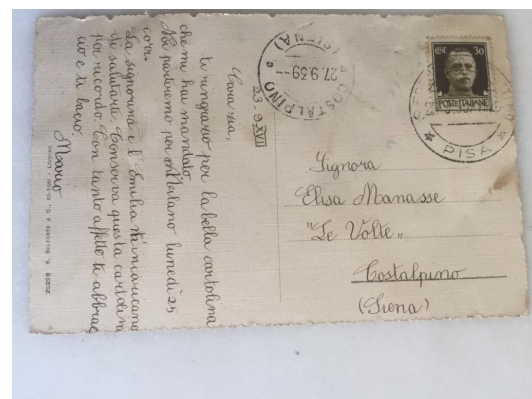 23-9-XVII
Cara zia,
ti ringrazio per la bella cartolina
che mi hai mandato.
Noi partiremo per lunedì 25
corr.
La signorina e l'Emilia m'incaricano
di salutarti. Conserva questa cartolina
per ricordo. Con tanto affetto ti abbrac
cio e ti bacio.
Mario
COSTALPINO
(SIENA)
27.9.39
CENT 30
POSTE ITALIANE
PISA
Signora
Elisa Manasse
"Le Volte"
Costalpino
(Siena)